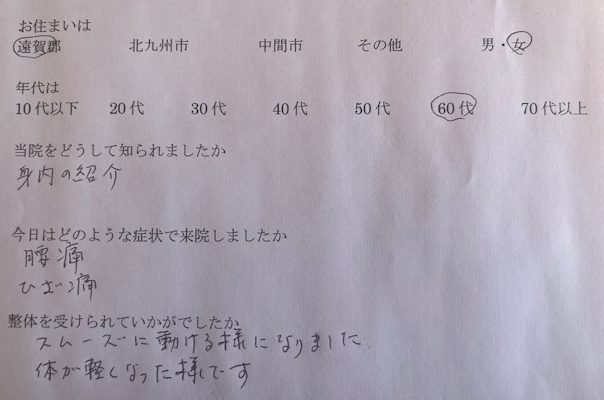 お住まいは
遠賀郡 北九州市 中間市 その他 男・女
年代は
10代以下 20代 30代 40代 50代 60代 70代以上
当院をどうして知られましたか
身内の紹介
今日はどのような症状で来院しましたか
腰痛
ひざ痛
整体を受けられていかがでしたか
スムーズに動ける様になりました.
体が軽くなった様です